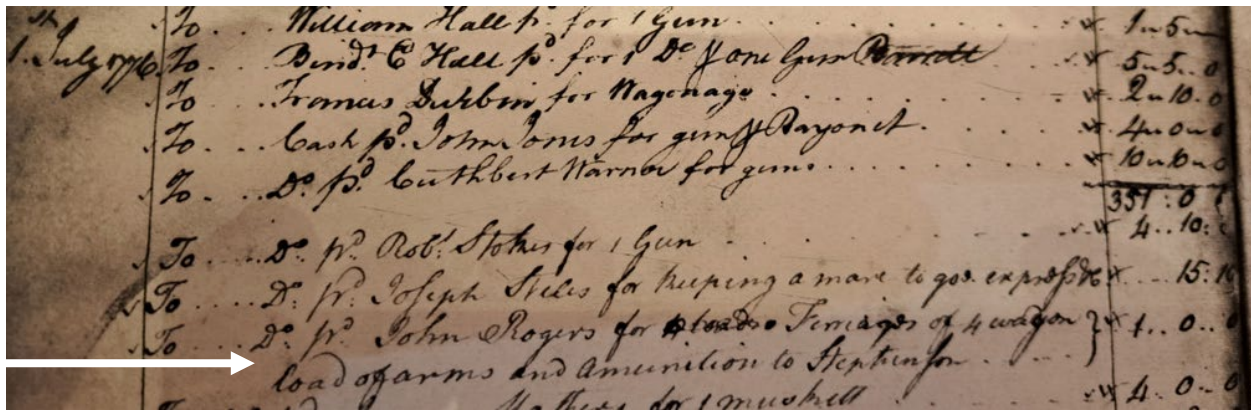 To . . . William Hall pd. for 1 Gun . . . 1 „ 5 „
1st July 1776. To . . Bend. Ed Hall pd. for 1 Do & one Gun Barrell . . . 5 „ 5 .. 0
To . . . Francis Durbin for Wagonage . . . 2 „ 10 . 0
To . . . Cash pd. John Jones for gun & Bayonet . . . 4 „ 0 „ 0
To . . . Do. pd. Cuthbert Warner for guns . . . 10 „ 10 „ 0
351 : 0
To . . . Do. pd. Robt. Stokes for 1 Gun . . . 4 .. 10 :
To . . . Do. pd. Joseph Stiles for keeping a mare to goe express &c . . . 15 : 10
To . . . Do. pd. John Rogers for Ferriages of 4 wagon } 1 .. 0 .. 0
load of arms and Amunition to Stephenson . . .
To Mathers for 1 muskett 4 . 0 . 0